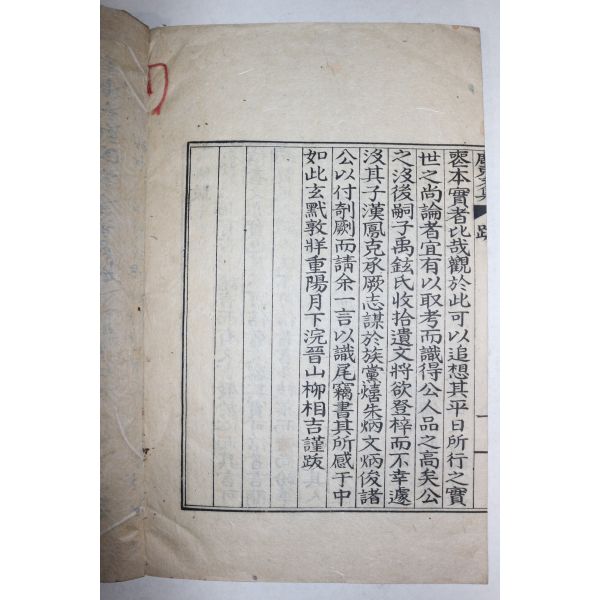 喪本實者比哉觀於此可以追想其平日所行之實
世之尚論者宜有以取考而識得公人品之高矣公
之沒後嗣子禹鉉氏收拾遺文將欲登梓而不幸遽
沒其子漢鳳克承厥志謀於族黨熺朱炳文炳俊諸
公以付剞劂而請余一言以識尾竊書其所感于中
如此玄黓敦牂重陽月下浣晉山柳相吉謹跋